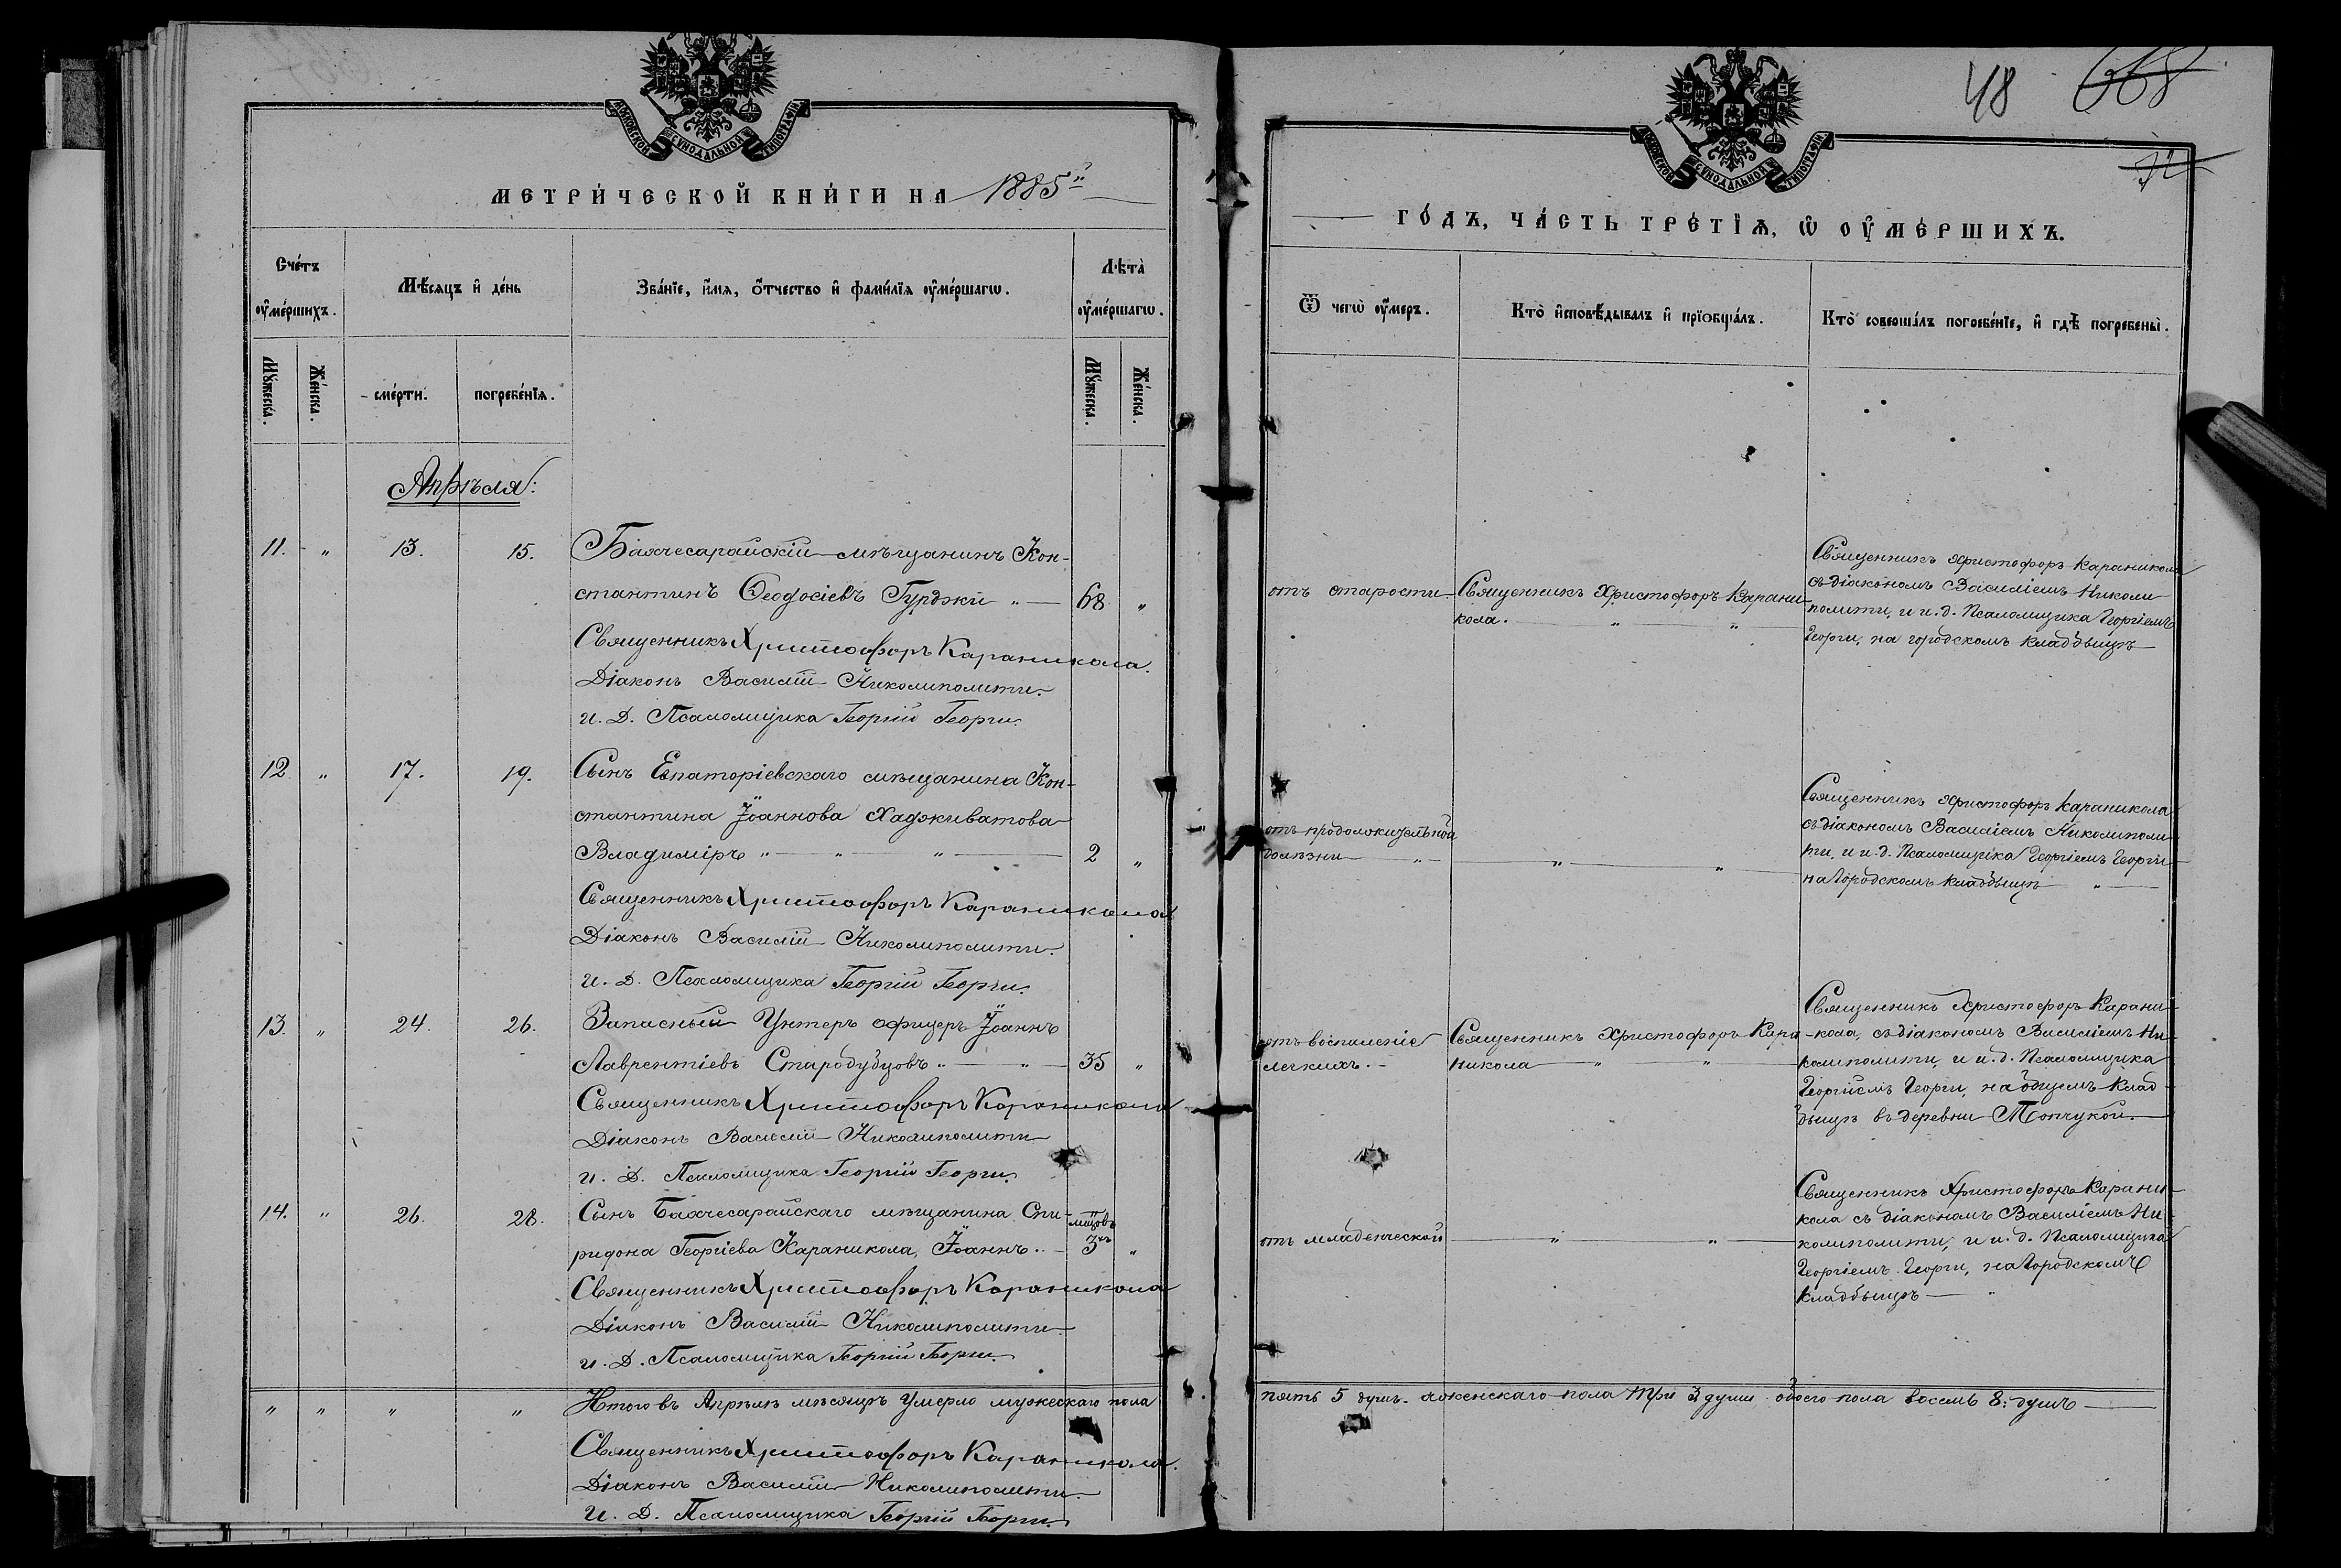 МОСКОВСКОЙ СѴНОДАЛЬНОЙ ТИПОГРАФІИ
МЕТРИ́ЧЕСКОЙ КНИ́ГИ НА 1885й
Сче́тъ ᲂу҆ме́ршихъ.
Мѣ́сяцъ и҆ де́нь
Зва́нїе, и҆́мѧ, ѻ҆́тчество и҆ фами́лїѧ ᲂу҆ме́ршагѡ.
Лѣта̀ ᲂу҆ме́ршагѡ.
Мꙋ́жеска.
Же́нска.
сме́рти.
погребе́нїѧ.
Мꙋ́жеска.
Же́нска.
Апрѣля:
11. " 13. 15. Бахчесарайскій мѣщанинъ Кон-
стантинъ Ѳеодосіевъ Гурджи " 68 "
Священникъ Христофоръ Караникола.
Діаконъ Василій Николиполити.
и. д. Псаломщика Георгій Георги.
12 " 17. 19. Сынъ Евпаторіевскаго мѣщанина Кон-
стантина Іоаннова Хадживатова
Владиміръ " " " 2 "
Священникъ Христофоръ Караникола
Діаконъ Василій Николиполити.
и. д. Псаломщика Георгій Георги.
13. " 24. 26. Запасный Унтеръ офицеръ Іоаннъ
Лаврентіевъ Стародубцовъ " " 35 "
Священникъ Христофоръ Караникола
Діаконъ Василій Николиполити
и. д. Псаломщика Георгій Георги.
14. " 26. 28. Сынъ Бахчесарайскаго мѣщанина Спи-
ридона Георгіева Караникола, Іоаннъ " 3 "
Священникъ Христофоръ Караникола
Діаконъ Василій Николиполити
и. д. Псаломщика Георгій Георги.
" " " " Итого въ Апрѣлѣ мѣсяцѣ умерло мужескаго пола
Священникъ Христофоръ Караникола.
Діаконъ Василій Николиполити.
и. д. Псаломщика Георгій Георги.
48 668
МОСКОВСКОЙ СѴНОДАЛЬНОЙ ТИПОГРАФІИ
ГО́ДЪ, ЧА́СТЬ ТРЕ́ТЇѦ, Ѡ҆ ОУ҆МЕ́РШИХЪ.
Ѿ чегѡ̀ ᲂу҆́меръ.
Кто̀ и҆сповѣ́дывалъ и҆ прїобща́лъ.
Кто̀ соверша́лъ погребе́нїе, и҆ гдѣ̀ погребены̀.
отъ старости
Священникъ Христофоръ Карани-
кола. " "
Священникъ Христофоръ Караникола
съ діакономъ Василіемъ Николи
политы, и и. д. Псаломщика Георгіемъ
Георги, на городскомъ кладбыщѣ
отъ продолжительной
болѣзни "
" "
Священникъ Христофоръ Караникола
съ діакономъ Василіемъ Николиполи-
ти, и и. д. Псаломщика Георгіемъ Георги
на городскомъ кладбыщѣ "
отъ воспаленіе
легкихъ.
Священникъ Христофоръ Кара-
никола " "
Священникъ Христофоръ Карани-
кола, съ діакономъ Василіемъ Ни-
колиполити, и и. д. Псаломщика
Георгіемъ Георги, на общемъ клад-
быщѣ въ деревни Топчукой.
отъ младенческой
" "
Священникъ Христофоръ Карани-
кола съ діакономъ Василіемъ Ни-
колиполити, и и. д. Псаломщика
Георгіемъ Георги, на городскомъ
кладбыщѣ "
пять 5 душъ. женскаго пола три 3 души обоего пола восемь 8: душъ